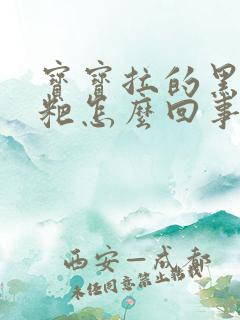 寶寶拉的黑
粑怎麼回事
西安—成都
未任同意禁止轉載